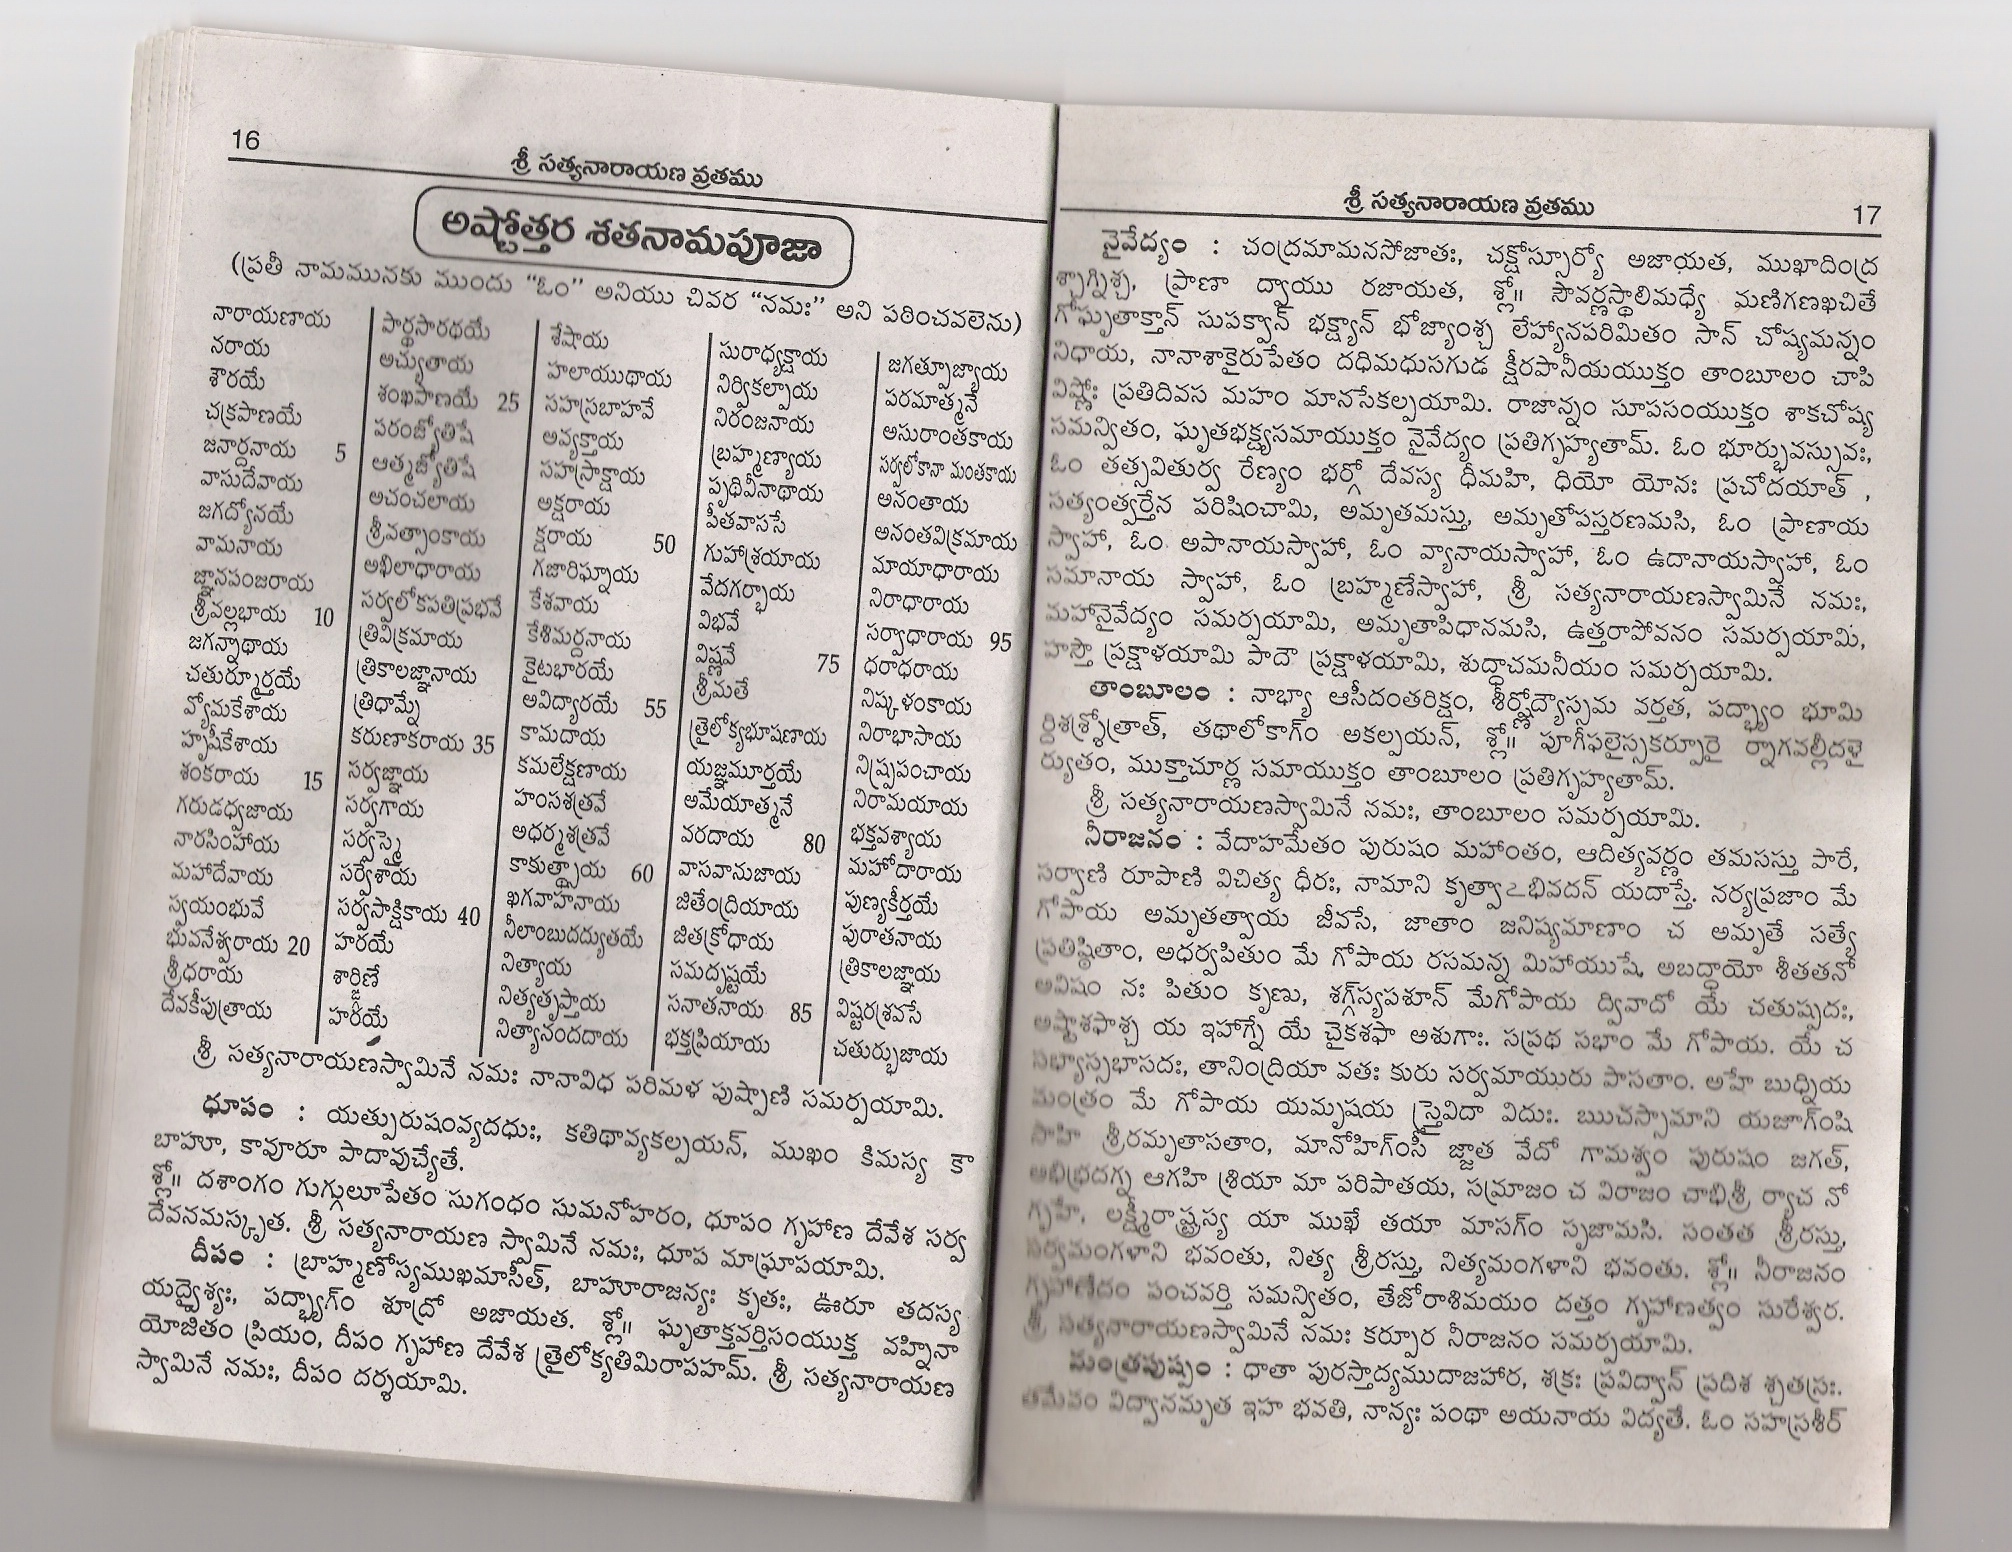 16
శ్రీ సత్యనారాయణ వ్రతము
అష్టోత్తర శతనామపూజా
(ప్రతీ నామమునకు ముందు “ఓం” అనియు చివర “నమః” అని పఠించవలెను)
నారాయణాయ
నరాయ
శౌరయే
చక్రపాణయే
జనార్దనాయ 5
వాసుదేవాయ
జగద్యోనయే
వామనాయ
జ్ఞానపంజరాయ
శ్రీవల్లభాయ 10
జగన్నాథాయ
చతుర్మూర్తయే
వ్యోమకేశాయ
హృషీకేశాయ
శంకరాయ 15
గరుడధ్వజాయ
నారసింహాయ
మహాదేవాయ
స్వయంభువే
భువనేశ్వరాయ 20
శ్రీధరాయ
దేవకీపుత్రాయ
పార్థసారథయే
అచ్యుతాయ
శంఖపాణయే 25
పరంజ్యోతిషే
ఆత్మజ్యోతిషే
అచంచలాయ
శ్రీవత్సాంకాయ
అఖిలాధారాయ
సర్వలోకపతిప్రభవే
త్రివిక్రమాయ
త్రికాలజ్ఞానాయ
త్రిధామ్నే
కరుణాకరాయ 35
సర్వజ్ఞాయ
సర్వగాయ
సర్వస్మై
సర్వేశాయ
సర్వసాక్షికాయ 40
హరయే
శార్ఙ్గిణే
హరయే
శేషాయ
హలాయుధాయ
సహస్రబాహవే
అవ్యక్తాయ
సహస్రాక్షాయ
అక్షరాయ
క్షరాయ 50
గజారిఘ్నాయ
కేశవాయ
కేశిమర్దనాయ
కైటభారయే
అవిద్యారయే 55
కామదాయ
కమలేక్షణాయ
హంసశత్రవే
అధర్మశత్రవే
కాకుత్థ్సాయ 60
ఖగవాహనాయ
నీలాంబుదద్యుతయే
నిత్యాయ
నిత్యతృప్తాయ
నిత్యానందదాయ
సురాధ్యక్షాయ
నిర్వికల్పాయ
నిరంజనాయ
బ్రహ్మణ్యాయ
పృథివీనాథాయ
పీతవాససే
గుహాశ్రయాయ
వేదగర్భాయ
విభవే
విష్ణవే 75
శ్రీమతే
త్రైలోక్యభూషణాయ
యజ్ఞమూర్తయే
అమేయాత్మనే
వరదాయ 80
వాసవానుజాయ
జితేంద్రియాయ
జితక్రోధాయ
సమదృష్టయే
సనాతనాయ 85
భక్తప్రియాయ
జగత్పూజ్యాయ
పరమాత్మనే
అసురాంతకాయ
సర్వలోకానా మంతకాయ
అనంతాయ
అనంతవిక్రమాయ
మాయాధారాయ
నిరాధారాయ
సర్వాధారాయ 95
ధరాధరాయ
నిష్కళంకాయ
నిరాభాసాయ
నిష్ప్రపంచాయ
నిరామయాయ
భక్తవశ్యాయ
మహోదారాయ
పుణ్యకీర్తయే
పురాతనాయ
త్రికాలజ్ఞాయ
విష్టరశ్రవసే
చతుర్భుజాయ
శ్రీ సత్యనారాయణస్వామినే నమః నానావిధ పరిమళ పుష్పాణి సమర్పయామి.
ధూపం : యత్పురుషంవ్యదధుః, కతిథావ్యకల్పయన్, ముఖం కిమస్య కౌ
బాహూ, కావూరూ పాదావుచ్యేతే.
శ్లో॥ దశాంగం గుగ్గులూపేతం సుగంధం సుమనోహరం, ధూపం గృహాణ దేవేశ సర్వ
దేవనమస్కృత. శ్రీ సత్యనారాయణ స్వామినే నమః, ధూప మాఘ్రాపయామి.
దీపం : బ్రాహ్మణోస్యముఖమాసీత్, బాహూరాజన్యః కృతః, ఊరూ తదస్య
యద్వైశ్యః, పద్భ్యాగ్ం శూద్రో అజాయత. శ్లో॥ ఘృతాక్తవర్తిసంయుక్త వహ్నినా
యోజితం ప్రియం, దీపం గృహాణ దేవేశ త్రైలోక్యతిమిరాపహమ్. శ్రీ సత్యనారాయణ
స్వామినే నమః, దీపం దర్శయామి.
శ్రీ సత్యనారాయణ వ్రతము
17
నైవేద్యం : చంద్రమామనసోజాతః, చక్షోస్సూర్యో అజాయత, ముఖాదింద్ర
శ్చాగ్నిశ్చ, ప్రాణా ద్వాయు రజాయత, శ్లో॥ సౌవర్ణస్థాలిమధ్యే మణిగణఖచితే
గోఘృతాక్తాన్ సుపక్వాన్ భక్ష్యాన్ భోజ్యాంశ్చ లేహ్యానపరిమితం సాన్ చోష్యమన్నం
నిధాయ, నానాశాకైరుపేతం దధిమధుసగుడ క్షీరపానీయయుక్తం తాంబూలం చాపి
విష్ణోః ప్రతిదివస మహం మానసేకల్పయామి. రాజాన్నం సూపసంయుక్తం శాకచోష్య
సమన్వితం, ఘృతభక్ష్యసమాయుక్తం నైవేద్యం ప్రతిగృహ్యతామ్. ఓం భూర్భువస్సువః,
ఓం తత్సవితుర్వ రేణ్యం భర్గో దేవస్య ధీమహి, ధియో యోనః ప్రచోదయాత్ ,
సత్యంత్వర్తేన పరిషించామి, అమృతమస్తు, అమృతోపస్తరణమసి, ఓం ప్రాణాయ
స్వాహా, ఓం అపానాయస్వాహా, ఓం వ్యానాయస్వాహా, ఓం ఉదానాయస్వాహా, ఓం
సమానాయ స్వాహా, ఓం బ్రహ్మణేస్వాహా, శ్రీ సత్యనారాయణస్వామినే నమః,
మహానైవేద్యం సమర్పయామి, అమృతాపిధానమసి, ఉత్తరాపోవనం సమర్పయామి,
హస్తౌ ప్రక్షాళయామి పాదౌ ప్రక్షాళయామి, శుద్ధాచమనీయం సమర్పయామి.
తాంబూలం : నాభ్యా ఆసీదంతరిక్షం, శీర్ష్ణోద్యౌస్సమ వర్తత, పద్భ్యాం భూమి
ర్దిశశ్శ్రోత్రాత్, తథాలోకాగ్ం అకల్పయన్, శ్లో॥ పూగీఫలైస్సకర్పూరై ర్నాగవల్లీదళై
ర్యుతం, ముక్తాచూర్ణ సమాయుక్తం తాంబూలం ప్రతిగృహ్యతామ్.
శ్రీ సత్యనారాయణస్వామినే నమః, తాంబూలం సమర్పయామి.
నీరాజనం : వేదాహమేతం పురుషం మహాంతం, ఆదిత్యవర్ణం తమసస్తు పారే,
సర్వాణి రూపాణి విచిత్య ధీరః, నామాని కృత్వాఽభివదన్ యదాస్తే. నర్యప్రజాం మే
గోపాయ అమృతత్వాయ జీవసే, జాతాం జనిష్యమాణాం చ అమృతే సత్యే
ప్రతిష్ఠితాం, అధర్వపితుం మే గోపాయ రసమన్న మిహాయుషే, అబద్ధాయో శీతతనో
అవిషం నః పితుం కృణు, శగ్గ్‌స్యపశూన్ మేగోపాయ ద్వివాదో యే చతుష్పదః,
అష్టాశఫాశ్చ య ఇహాగ్నే యే చైకశఫా అశుగాః. సప్రథ సభాం మే గోపాయ. యే చ
సభ్యాస్సభాసదః, తానింద్రియా వతః కురు సర్వమాయురు పాసతాం. అహే బుధ్నియ
మంత్రం మే గోపాయ యమృషయ స్త్రైవిదా విదుః. ఋచస్సామాని యజూగ్ంషి
సాహి శ్రీరమృతాసతాం, మానోహిగ్ంసీ జ్జాత వేదో గామశ్వం పురుషం జగత్,
అభిభ్రదగ్న ఆగహి శ్రియా మా పరిపాతయ, సమ్రాజం చ విరాజం చాభిశ్రీ ర్యాచ నో
గృహే, లక్ష్మీరాష్ట్రస్య యా ముఖే తయా మాసగ్ం సృజామసి. సంతత శ్రీరస్తు,
సర్వమంగళాని భవంతు, నిత్య శ్రీరస్తు, నిత్యమంగళాని భవంతు. శ్లో॥ నీరాజనం
గృహాణేదం పంచవర్తి సమన్వితం, తేజోరాశిమయం దత్తం గృహాణత్వం సురేశ్వర.
శ్రీ సత్యనారాయణస్వామినే నమః కర్పూర నీరాజనం సమర్పయామి.
మంత్రపుష్పం : ధాతా పురస్తాద్యముదాజహార, శక్రః ప్రవిద్వాన్ ప్రదిశ శ్చతస్రః.
తమేవం విద్వానమృత ఇహ భవతి, నాన్యః పంథా అయనాయ విద్యతే. ఓం సహస్రశీర్